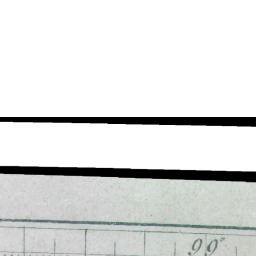 99°